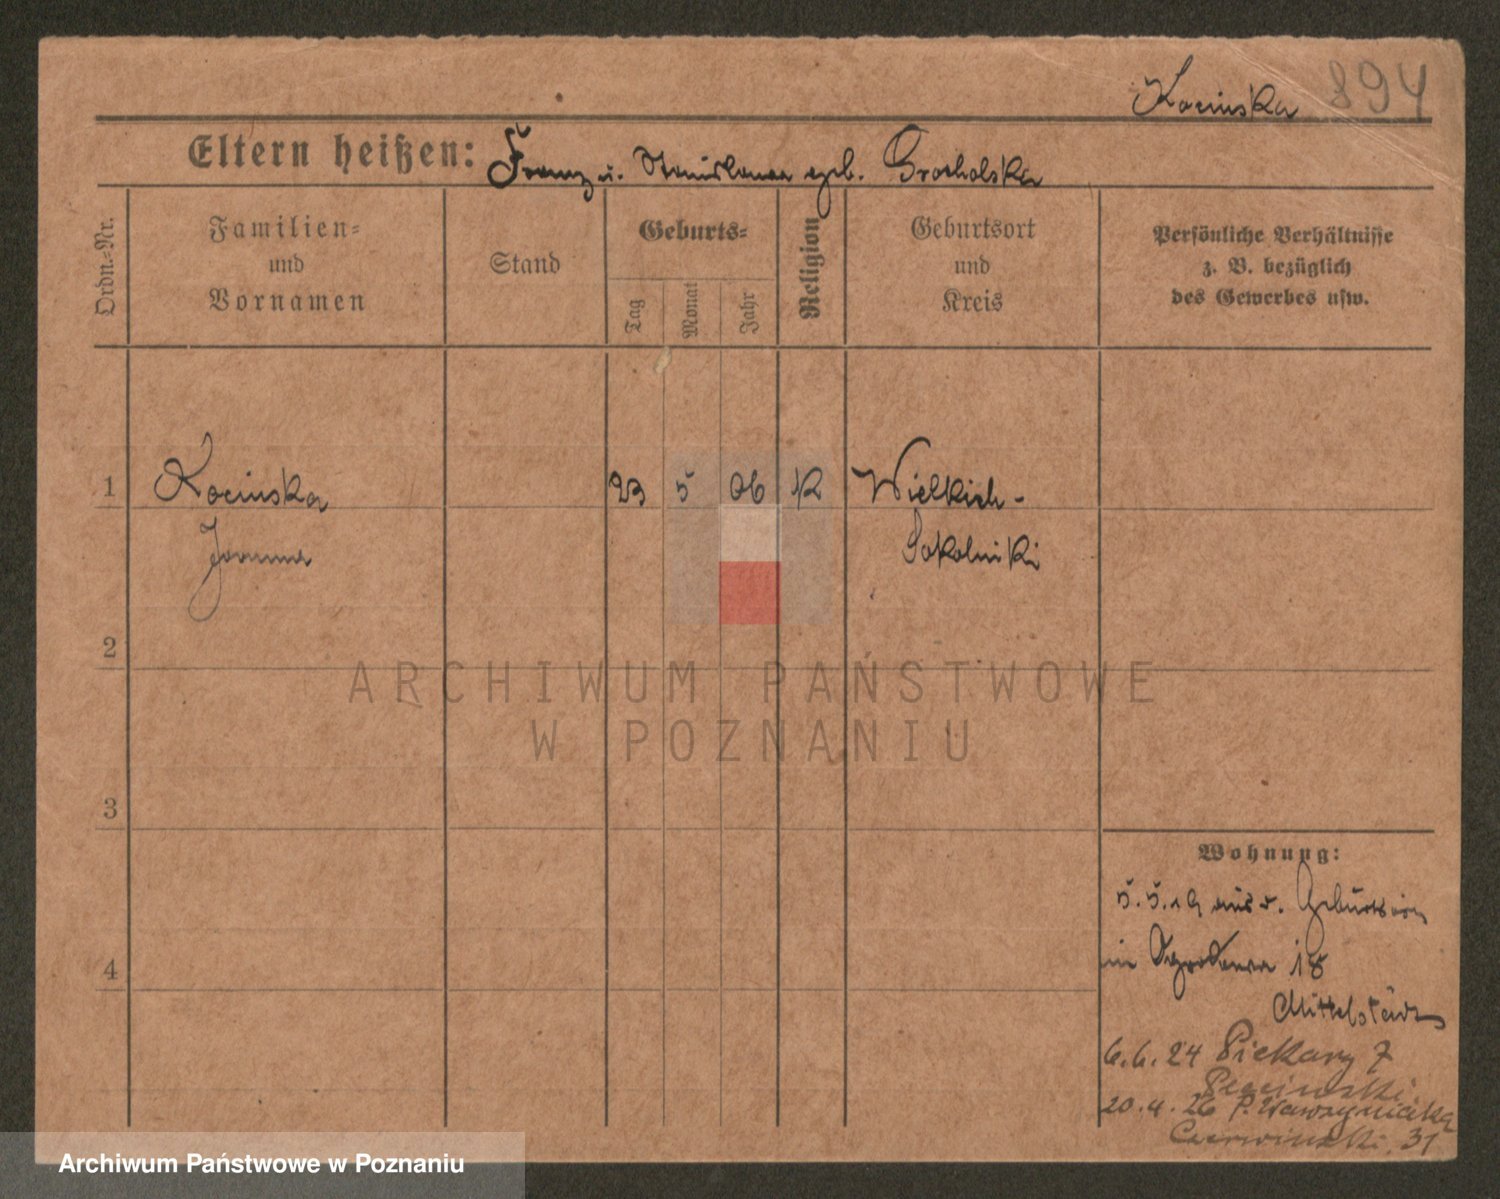 Kocinska 894
Eltern heißen: Franz u. Stanislawa geb. Grocholska
Ordn.-Nr.
Familien-
und
Vornamen
Stand
Geburts-
Tag
Monat
Jahr
Religion
Geburtsort
und
Kreis
Persönliche Verhältnisse
z. B. bezüglich
des Gewerbes usw.
1 Kocinska 23 5 06 K Wielkich-
Joanna Sokolniki
2
3
4
ARCHIWUM PAŃSTWOWE
W POZNANIU
Wohnung:
5.5.19 aus d. Geburtsort
in 18
Mittelstädt
6.6.24 Piekary 7
20.4.26 P. Wawrzyniaka
Czerwinski. 31
Archiwum Państwowe w Poznaniu